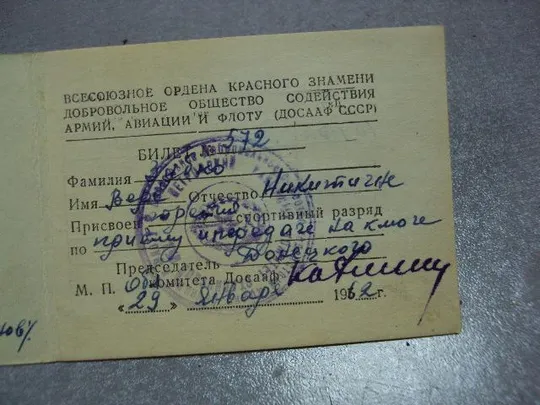 ВСЕСОЮЗНОЕ ОРДЕНА КРАСНОГО ЗНАМЕНИ
ДОБРОВОЛЬНОЕ ОБЩЕСТВО СОДЕЙСТВИЯ
АРМИИ, АВИАЦИИ И ФЛОТУ (ДОСААФ СССР)
БИЛЕТ № 572
Фамилия
Имя Вера Отчество Никитичне
Присвоен спортивный разряд
по приему и передаче на ключе
Председатель Донецкого
М. П. Обл комитета Досааф
„29" Январ 1962 г.